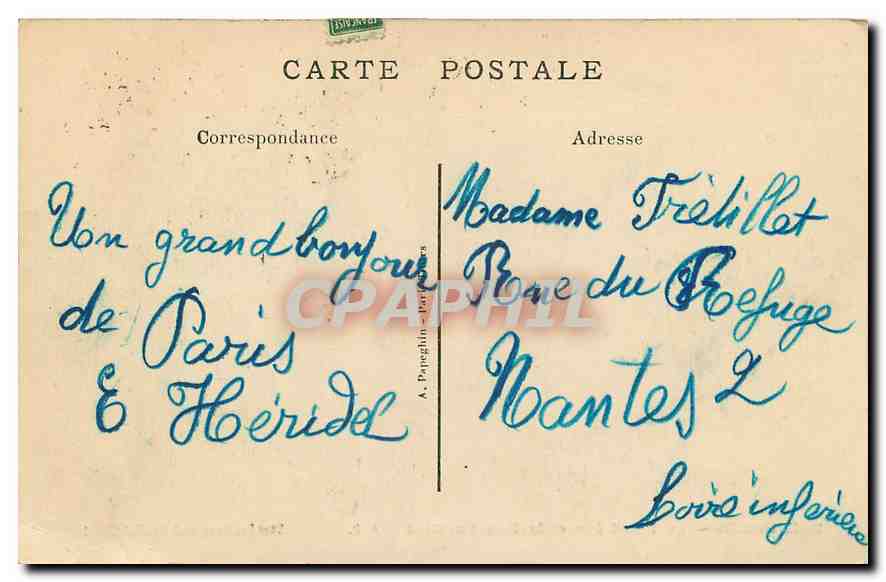 FRANÇAISE
CARTE POSTALE
Correspondance
Adresse
Un grand bonjour
de Paris
E Héridel
A. Papeghin - Paris
CPAPHIL
Madame
Rue du Refuge
Nantes 2
Loire inférieure